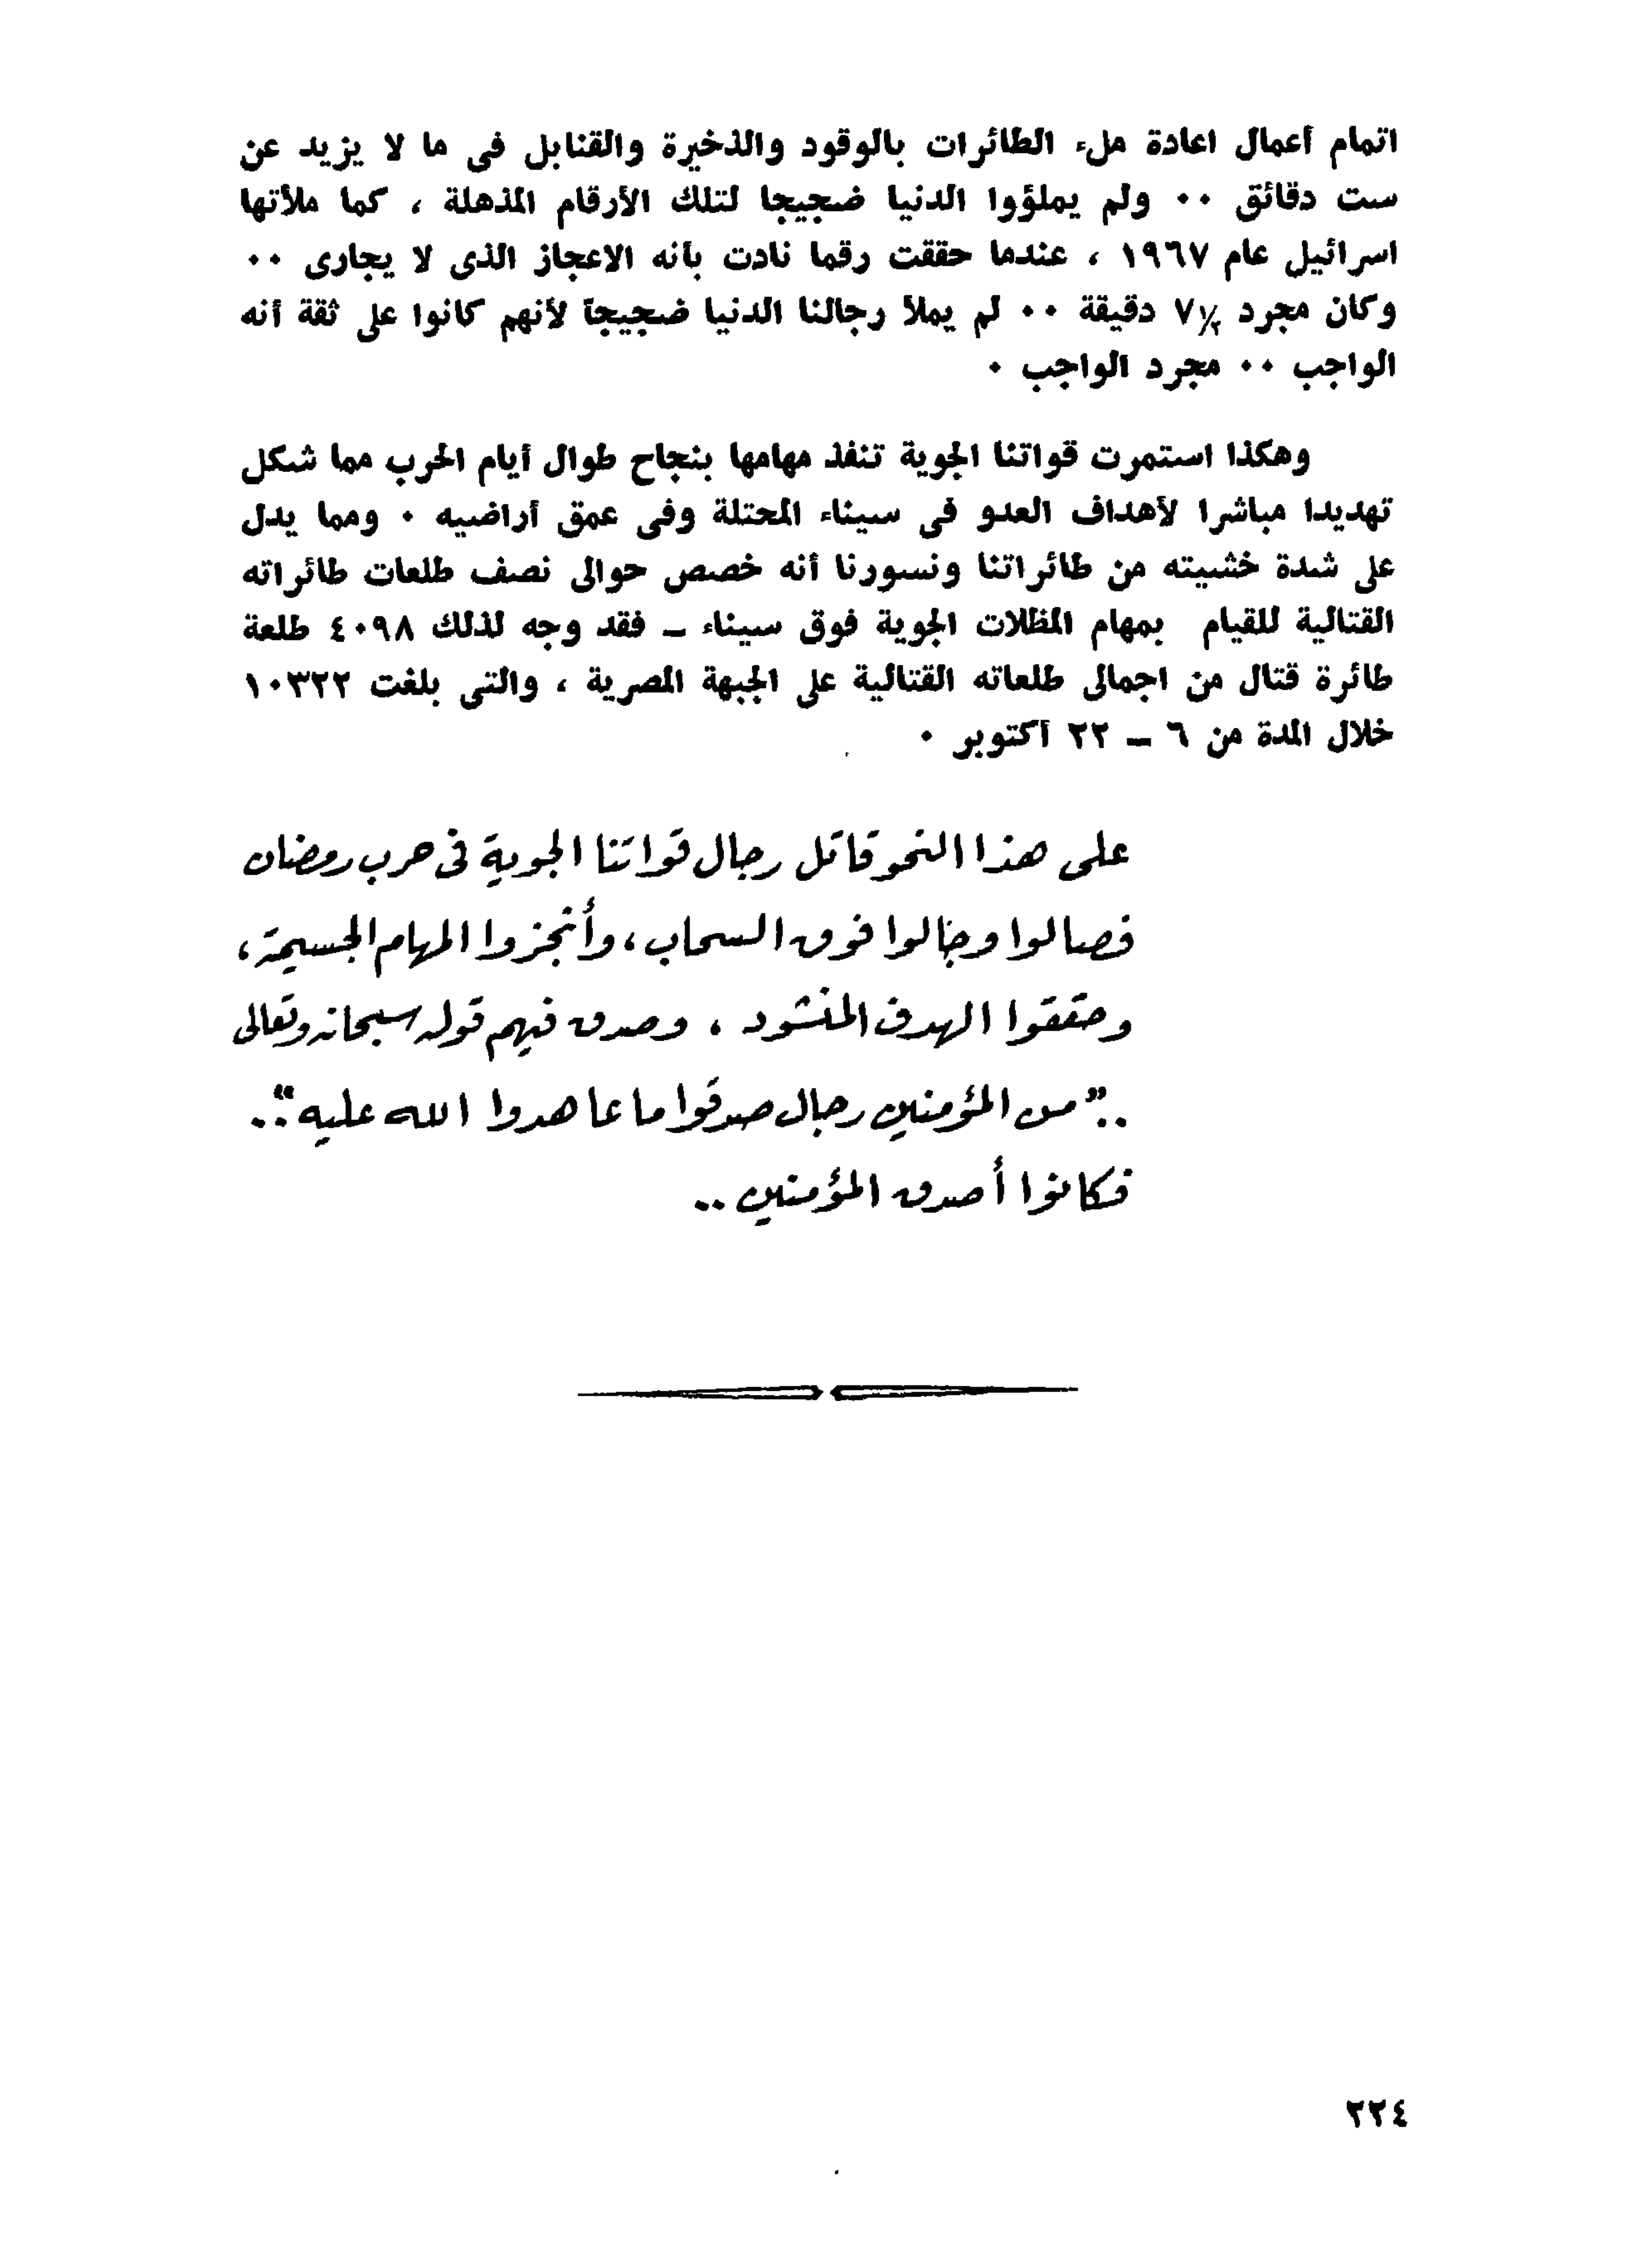 اتمام أعمال اعادة ملء الطائرات بالوقود والذخيرة والقنابل فى ما لا يزيد عن
ست دقائق ٠٠ ولم يملؤوا الدنيا ضجيجا لتلك الأرقام المذهلة ، كما ملأتها
اسرائيل عام ١٩٦٧ ، عندما حققت رقما نادت بأنه الاعجاز الذى لا يجارى ٠٠
وكان مجرد ٧½ دقيقة ٠٠ لم يملأ رجالنا الدنيا ضجيجاً لأنهم كانوا على ثقة أنه
الواجب ٠٠ مجرد الواجب ٠
وهكذا استمرت قواتنا الجوية تنفذ مهامها بنجاح طوال أيام الحرب مما شكل
تهديدا مباشرا لأهداف العدو فى سيناء المحتلة وفى عمق أراضيه ٠ ومما يدل
على شدة خشيته من طائراتنا ونسورنا أنه خصص حوالى نصف طلعات طائراته
القتالية للقيام بمهام المظلات الجوية فوق سيناء ــ فقد وجه لذلك ٤٠٩٨ طلعة
طائرة قتال من اجمالى طلعاته القتالية على الجبهة المصرية ، والتى بلغت ١٠٣٢٢
خلال المدة من ٦ ــ ٢٢ أكتوبر ٠
على هذا النحو قاتل رجال قواتنا الجوية فى حرب رمضان
فصالوا وجالوا فوق السحاب ، وأنجزوا المهام الجسيمة ،
وحققوا الهدف المنشود ، وصدق فيهم قوله سبحانه وتعالى
.. "من المؤمنين رجال صدقوا ما عاهدوا الله عليه" ..
فكانوا أصدق المؤمنين ..
٢٢٤